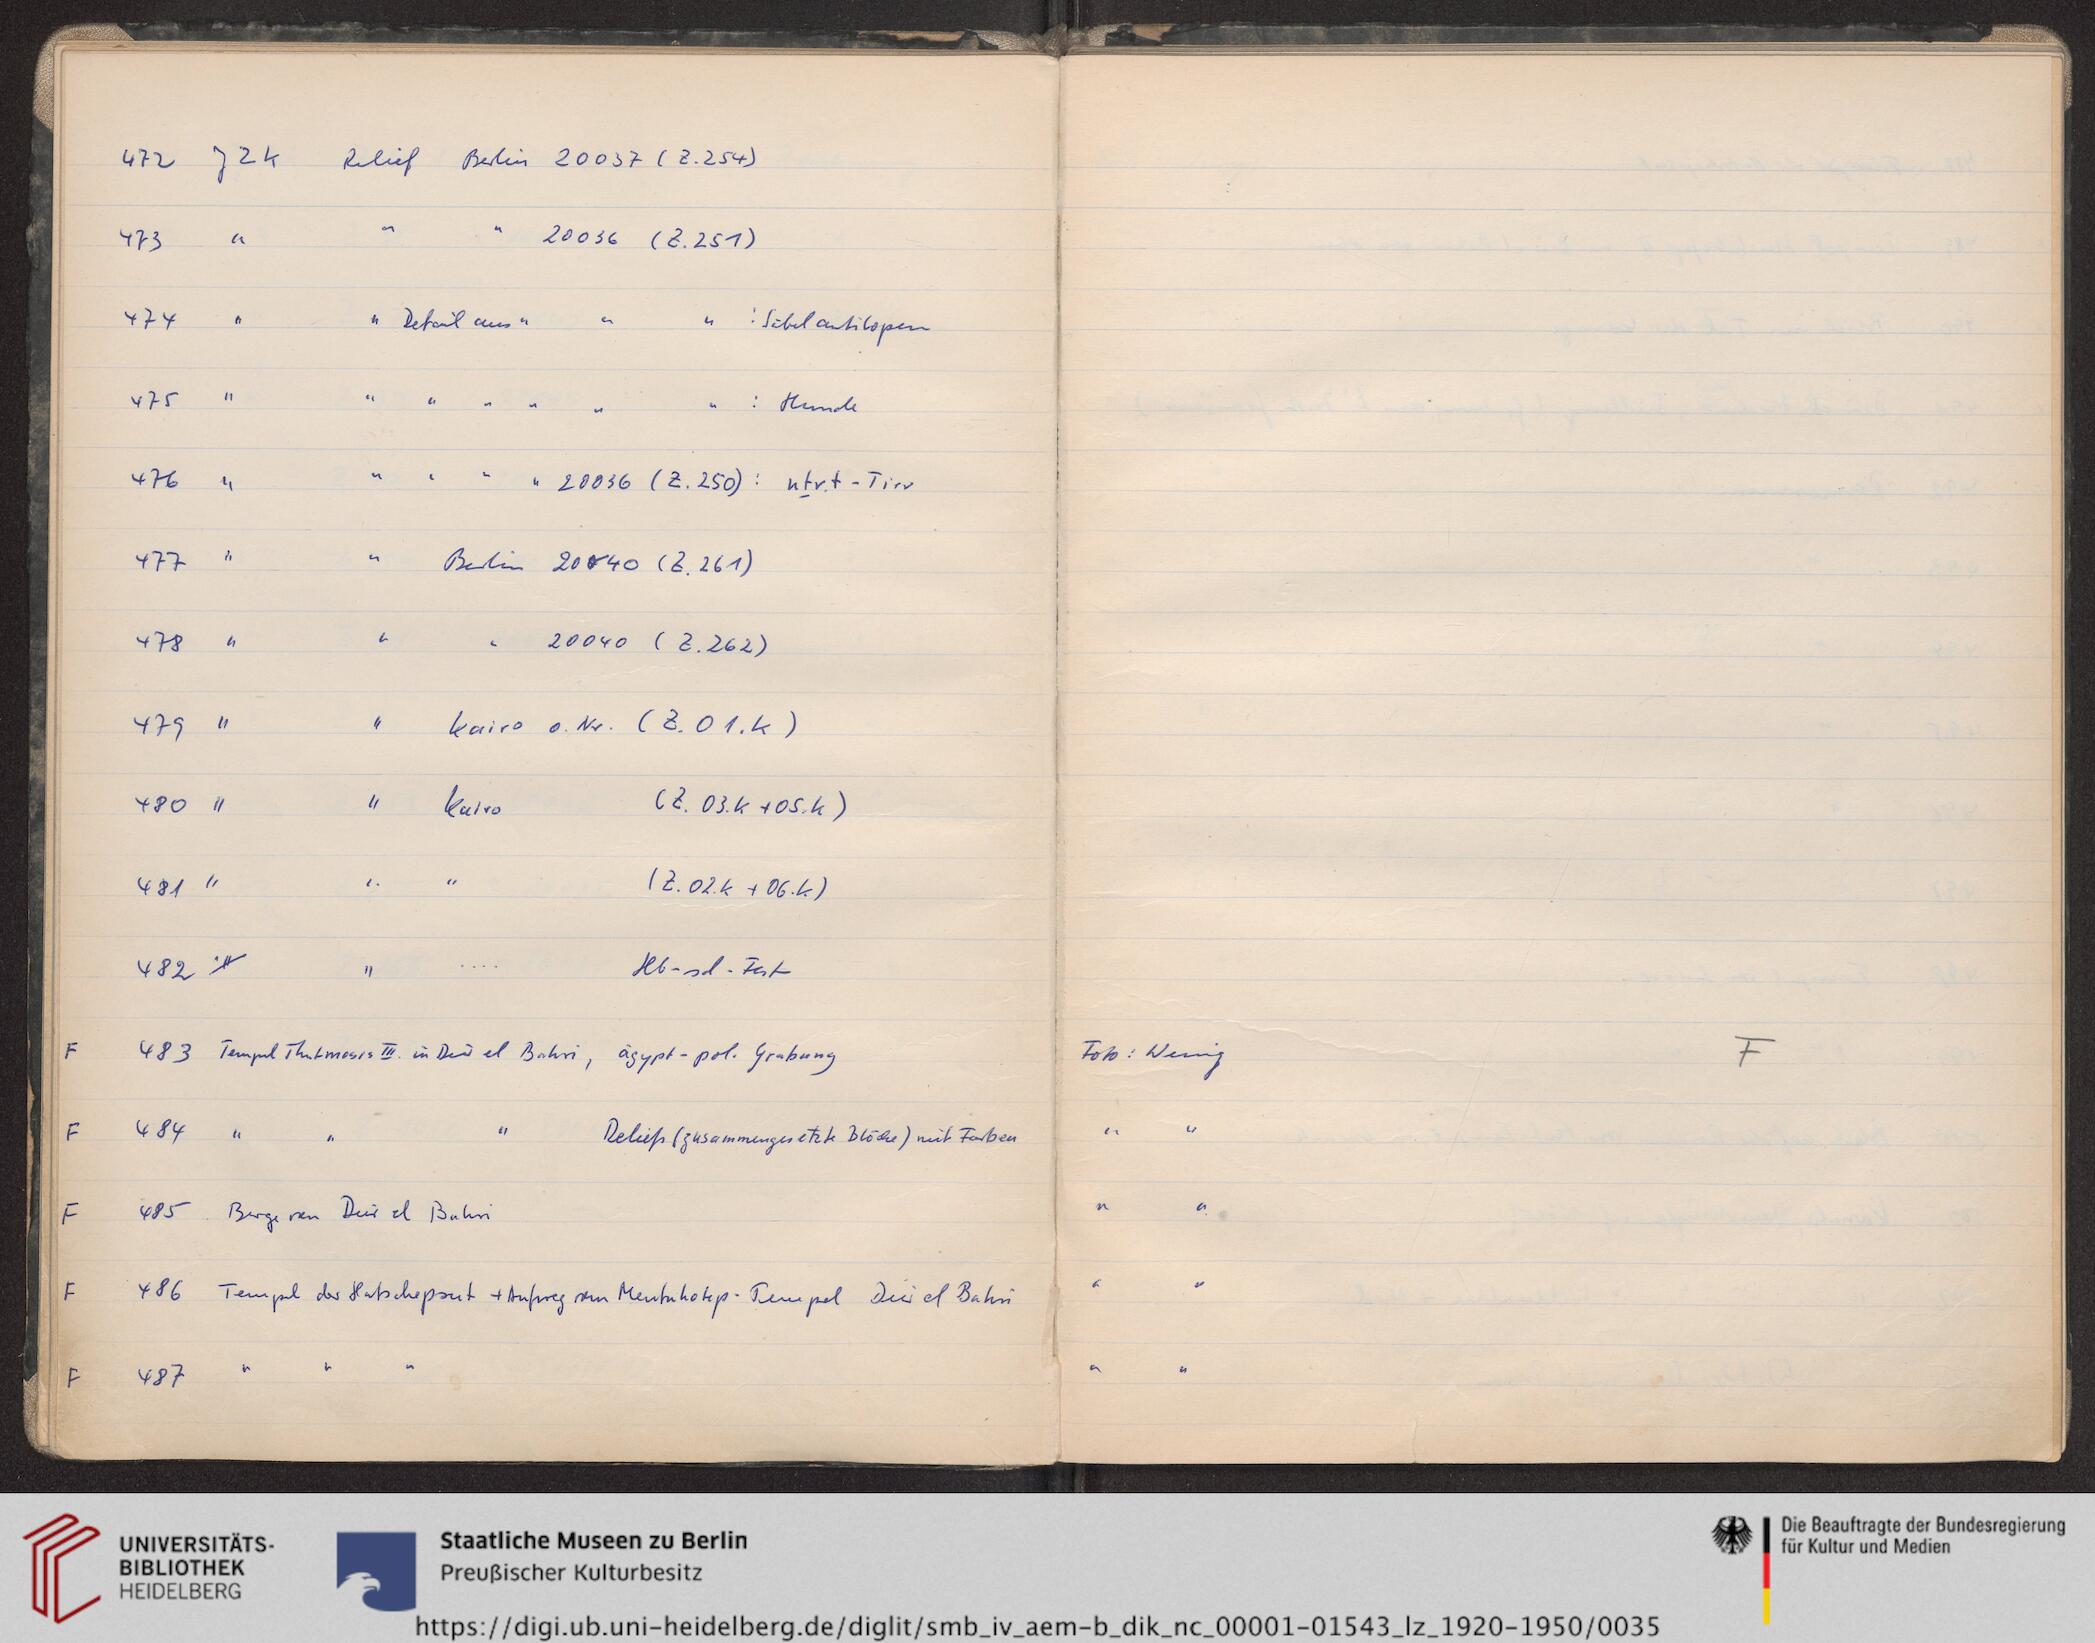 472 JZK Relief Berlin 20037 (Z.254)
473 " " " 20036 (Z.251)
474 " " Detail aus " " " : Säbelantilopen
475 " " " " " " " : Hunde
476 " " " " " 20036 (Z.250) : nṯr.t - Tier
477 " " Berlin 20040 (Z.261)
478 " " " 20040 (Z.262)
479 " " Kairo o. Nr. (Z. 01.K)
480 " " Kairo (Z. 03.K + 05.K)
481 " " " (Z. 02.K + 06.K)
482 " .... Hb-sd-Fest
F 483 Tempel Thutmosis III. in Deir el Bahri, ägypt-pol. Grabung Foto: Wenig F
F 484 " " " Reliefs (zusammengesetzte Blöcke) mit Farben " "
F 485 Berge von Deir el Bahri " "
F 486 Tempel der Hatschepsut + Aufweg vom Mentuhotep-Tempel Deir el Bahri " "
F 487 " " " " "
UNIVERSITÄTS-
BIBLIOTHEK
HEIDELBERG
Staatliche Museen zu Berlin
Preußischer Kulturbesitz
Die Beauftragte der Bundesregierung
für Kultur und Medien
https://digi.ub.uni-heidelberg.de/diglit/smb_iv_aem-b_dik_nc_00001-01543_lz_1920-1950/0035